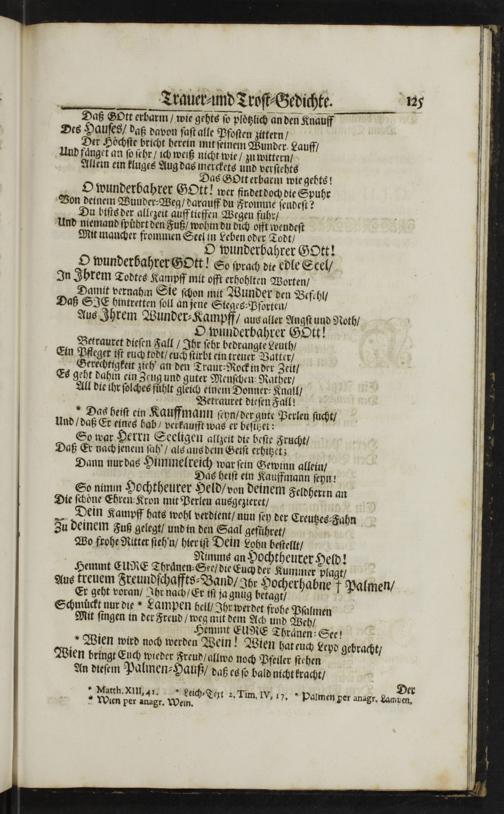 Trauer- und Trost-Gedichte. 125
Daß GOtt erbarm / wie gehts so plötzlich an den Knauff
Des Hauses / daß davon fast alle Pfosten zittern /
Der Höchste bricht herein mit seinem Wunder-Lauff /
Und fänget an so sehr / ich weiß nicht wie / zu wittern /
Allein ein kluges Aug das merckets und verstehts
Das GOtt erbarm wie gehts!
O wunderbahrer GOtt! wer findet doch die Spuhr
Von deinem Wunder-Weg / darauff du Fromme sendest?
Du bists der allezeit auff tieffen Wegen fuhr /
Und niemand spührt den Fuß / wohin du dich offt wendest
Mit mancher frommen Seel in Leben oder Todt /
O wunderbahrer GOtt!
O wunderbahrer GOtt! So sprach die edle Seel /
In Ihrem Todtes Kampff mit offt erhohlten Worten /
Damit vernahm Sie schon mit Wunder den Befehl /
Daß SIE hintretten soll an jene Sieges-Pforten /
Aus Ihrem Wunder-Kampff / aus aller Angst und Noth /
O wunderbahrer GOtt!
Betrauret diesen Fall / Ihr sehr bedrangte Leuth /
Ein Pfleger ist euch todt / euch stirbt ein treuer Vatter /
Gerechtigkeit zieh' an den Traur-Rock in der Zeit /
Es geht dahin ein Zeug und guter Menschen-Rather /
All die ihr solches fühlt gleich einem Donner-Knall /
Betrauret diesen Fall!
* Das heist ein Kauffmann seyn / der gute Perlen sucht /
Und / daß Er eines hab / verkaufft was er besitzet:
So war Herrn Seeligen allzeit die beste Frucht /
Daß Er nach jenem sah' / als aus dem Geist erhitzet;
Dann nur das Himmelreich war sein Gewinn allein /
Das heist ein Kauffmann seyn!
So nimm Hochtheurer Held / von deinem Feldherrn an
Die schöne Ehren-Kron mit Perlen ausgezieret /
Dein Kampff hats wohl verdient / nun sey der Creutzes-Fahn
Zu deinem Fuß gelegt / und in den Saal geführet /
Wo frohe Ritter steh'n / hier ist Dein Lohn bestellt /
Nimms an Hochtheurer Held!
Hemmt EURE Thränen-See / die Euch der Kummer plagt /
Aus treuem Freundschaffts-Band / Ihr Hocherhabne † Palmen /
Er geht voran / Ihr nach / Er ist ja gnug betagt /
Schmückt nur die * Lampen hell / Ihr werdet frohe Psalmen
Mit singen in der Freud / weg mit dem Ach und Weh /
Hemmt EURE Thränen-See!
* Wien wird noch werden Wein! Wien hat euch Leyd gebracht /
Wien bringt Euch wieder Freud / allwo noch Pfeiler stehen
An diesem Palmen-Hauß / daß es so bald nicht kracht /
Der
* Matth. XIII, 41. * Leich-Text 2. Tim. IV, 17. * Palmen per anagr. Lampen.
* Wien per anagr. Wein.